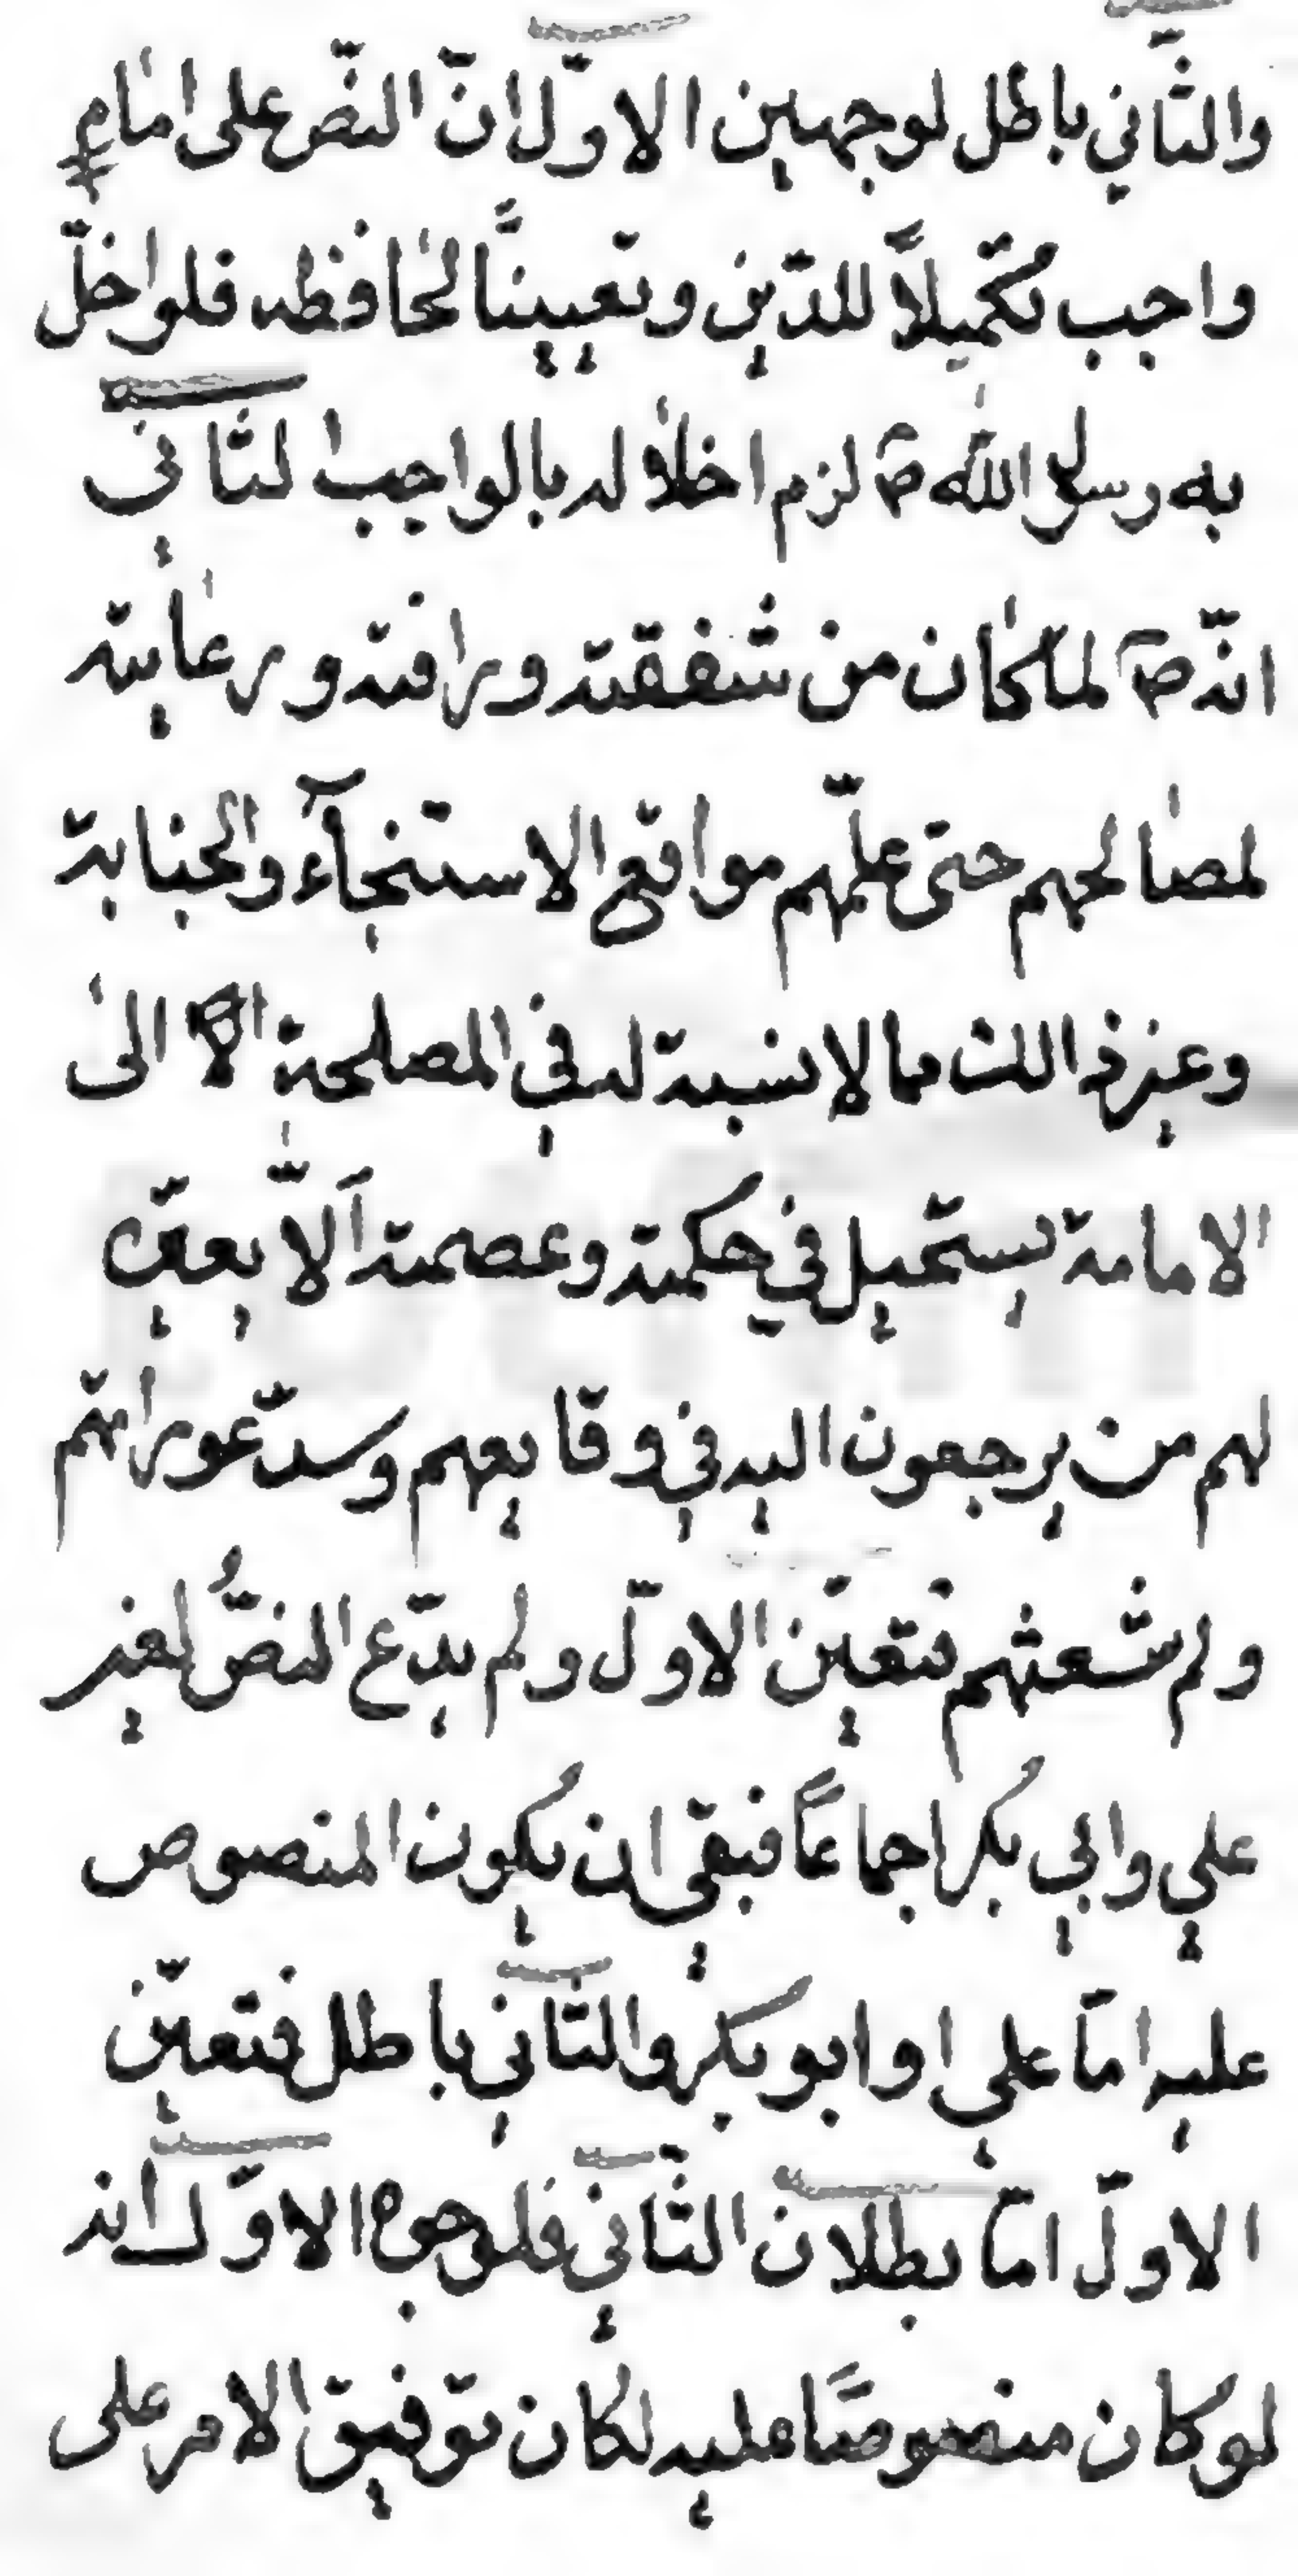 والثّاني باطل لوجهين الاوّل انّ النصّ على امام
واجب تكميلاً للدّين وتعييناً لحافظه فلو اخلّ
به رسول الله ص لزم اخلاله بالواجب الثاني
انّه ص لما كان من شفقته ورافته ورعايته
لمصالحهم حتى علّمهم مواقع الاستنجآء والجنابة
وغير ذالك مما لا نسبة له في المصلحة الى
الامامة يستحيل في حكمته وعصمته اَلّا يعيّن
لهم من يرجعون اليه في وقايعهم وسدّ عوراتهم
ولم شعثهم فتعيّن الاوّل ولم يدّع النصُّ لغير
علي وابي بكر اجماعاً فبقي ان يكون المنصوص
عليه امّا علي او ابو بكر والثاني باطل فتعيّن
الاوّل امّا بطلان الثّاني فلوجوه الاوّل انه
لو كان منصوصاً عليه لكان توفيق الامر على